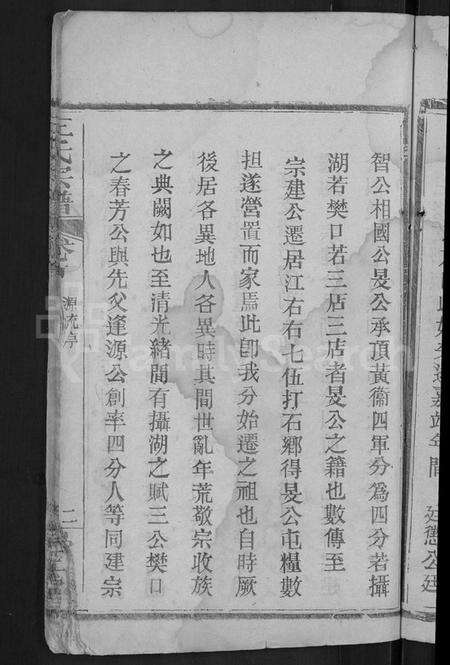 智公相國公旻公承頂黃衞四軍分為四分若攝
湖若樊口若三店三店者旻公之籍也數傳至
宗建公遷居江右右七伍打石鄉得旻公屯糧數
担遂營置而家焉此卽我分始遷之祖也自時厥
後居各異地人各異時其間世亂年荒敬宗收族
之典闕如也至清光緒間有攝湖之賦三公樊口
之春芳公與先父逢源公創率四分人等同建宗
王氏宗譜
源流序
二
FamilySearch